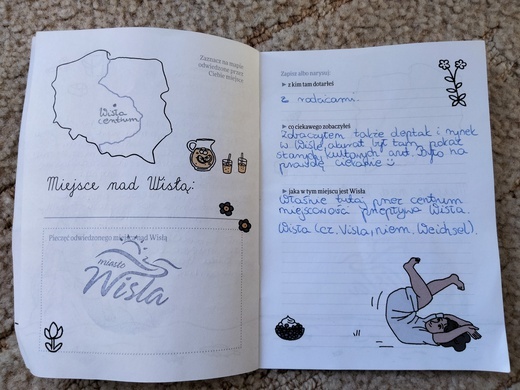 Zaznacz na mapie
odwiedzone przez
Ciebie miejsce
Wisła
centrum
Miejsce nad Wisłą:
Pieczęć odwiedzonego miejsca nad Wisłą
miasto
Wisła
Zapisz albo narysuj
➤ z kim tam dotarłeś
z rodzicami.
➤ co ciekawego zobaczyłeś
Zobaczyłem także deptak i rynek
w Wiśle, akurat był tam pokaz
starych kultowych aut. Było na
prawdę ciekawie :)
➤ jaka w tym miejscu jest Wisła
Właśnie tutaj przez centrum
miejscowości przepływa Wisła.
Wisła (cz. Visla, niem. Weichsel).